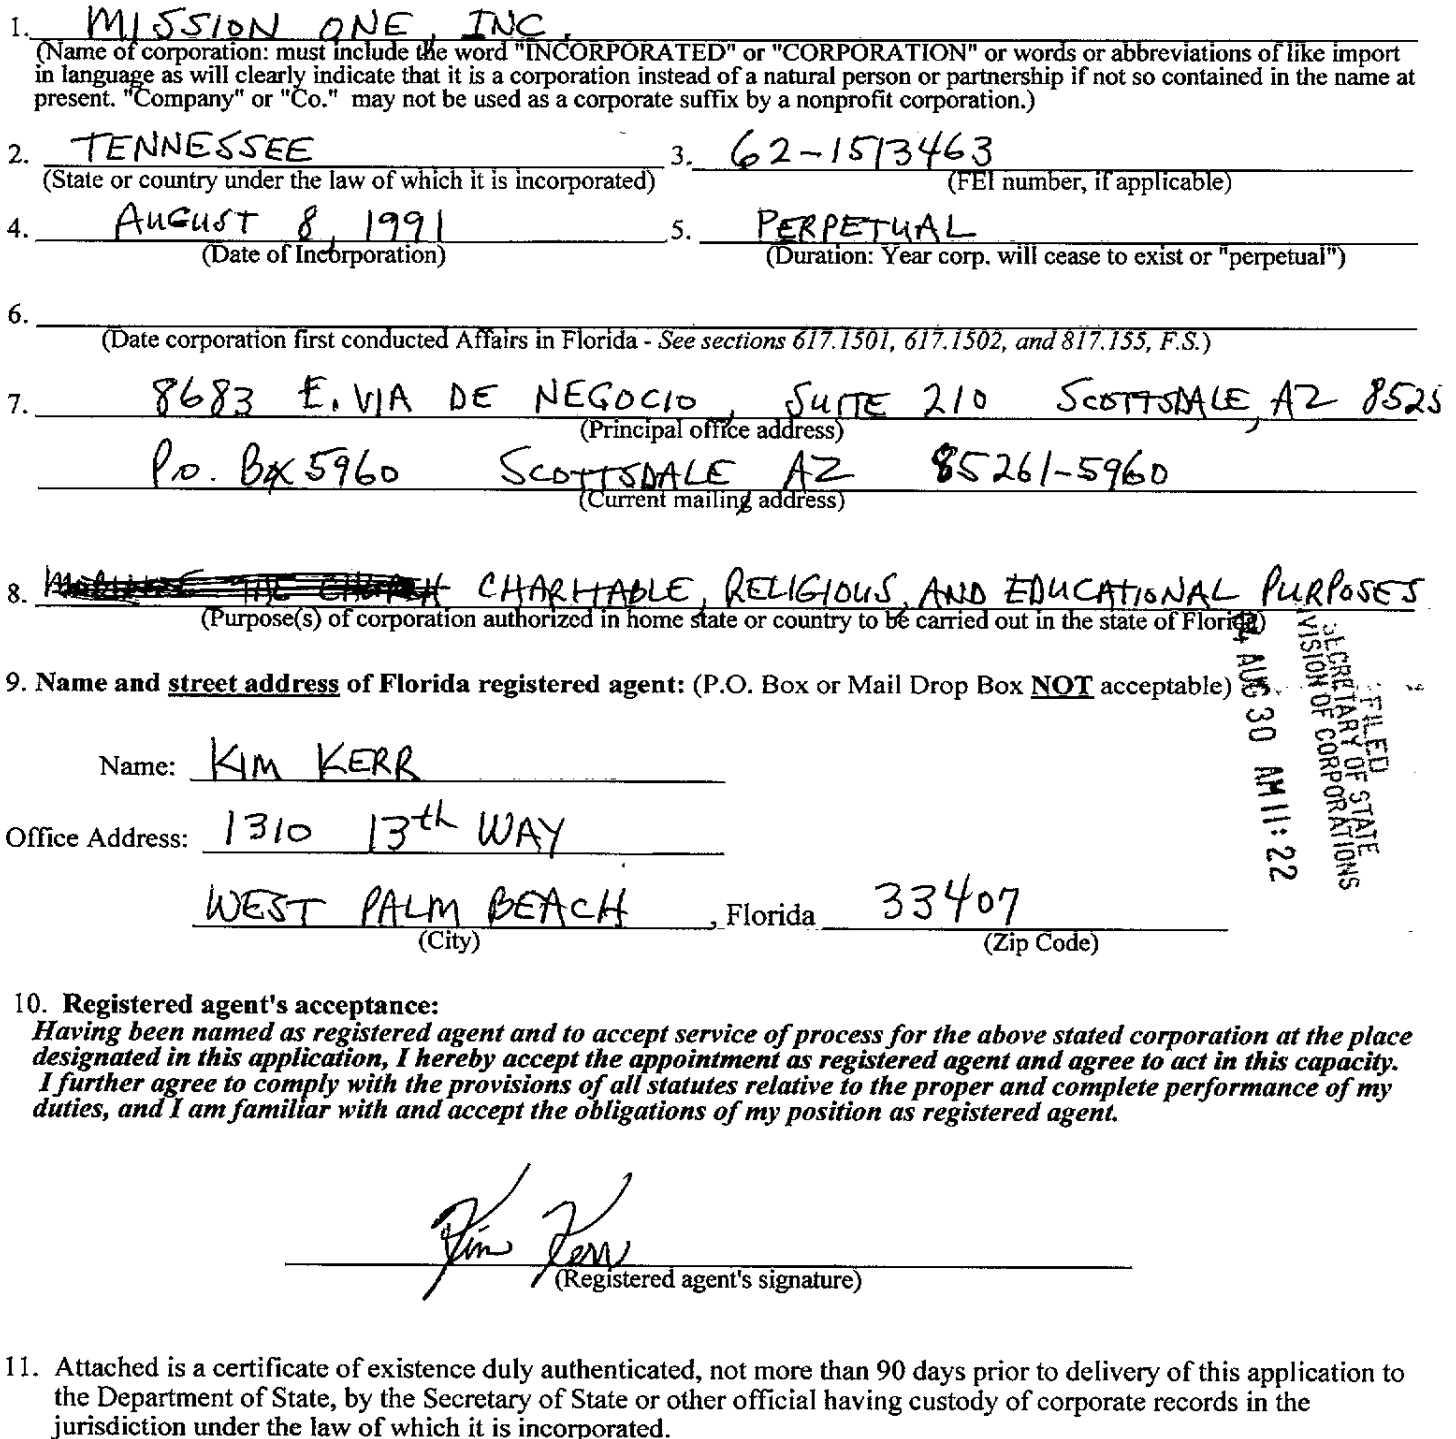 1. MISSION ONE, INC.
(Name of corporation: must include the word "INCORPORATED" or "CORPORATION" or words or abbreviations of like import
in language as will clearly indicate that it is a corporation instead of a natural person or partnership if not so contained in the name at
present. "Company" or "Co." may not be used as a corporate suffix by a nonprofit corporation.)
2. TENNESSEE 3. 62-1513463
(State or country under the law of which it is incorporated) (FEI number, if applicable)
4. AUGUST 8, 1991 5. PERPETUAL
(Date of Incorporation) (Duration: Year corp. will cease to exist or "perpetual")
6.
(Date corporation first conducted Affairs in Florida - See sections 617.1501, 617.1502, and 817.155, F.S.)
7. 8683 E. VIA DE NEGOCIO, SUITE 210 SCOTTSDALE, AZ 8525
(Principal office address)
P.O. BOX 5960 SCOTTSDALE AZ 85261-5960
(Current mailing address)
8. CHARITABLE, RELIGIOUS, AND EDUCATIONAL PURPOSES
(Purpose(s) of corporation authorized in home state or country to be carried out in the state of Florida)
9. Name and street address of Florida registered agent: (P.O. Box or Mail Drop Box NOT acceptable)
FILED
SECRETARY OF STATE
VISION OF CORPORATIONS
AUG 30 AM 11:22
Name: KIM KERR
Office Address: 1310 13th WAY
WEST PALM BEACH, Florida 33407
(City) (Zip Code)
10. Registered agent's acceptance:
Having been named as registered agent and to accept service of process for the above stated corporation at the place
designated in this application, I hereby accept the appointment as registered agent and agree to act in this capacity.
I further agree to comply with the provisions of all statutes relative to the proper and complete performance of my
duties, and I am familiar with and accept the obligations of my position as registered agent.
Kim Kerr
(Registered agent's signature)
11. Attached is a certificate of existence duly authenticated, not more than 90 days prior to delivery of this application to
the Department of State, by the Secretary of State or other official having custody of corporate records in the
jurisdiction under the law of which it is incorporated.